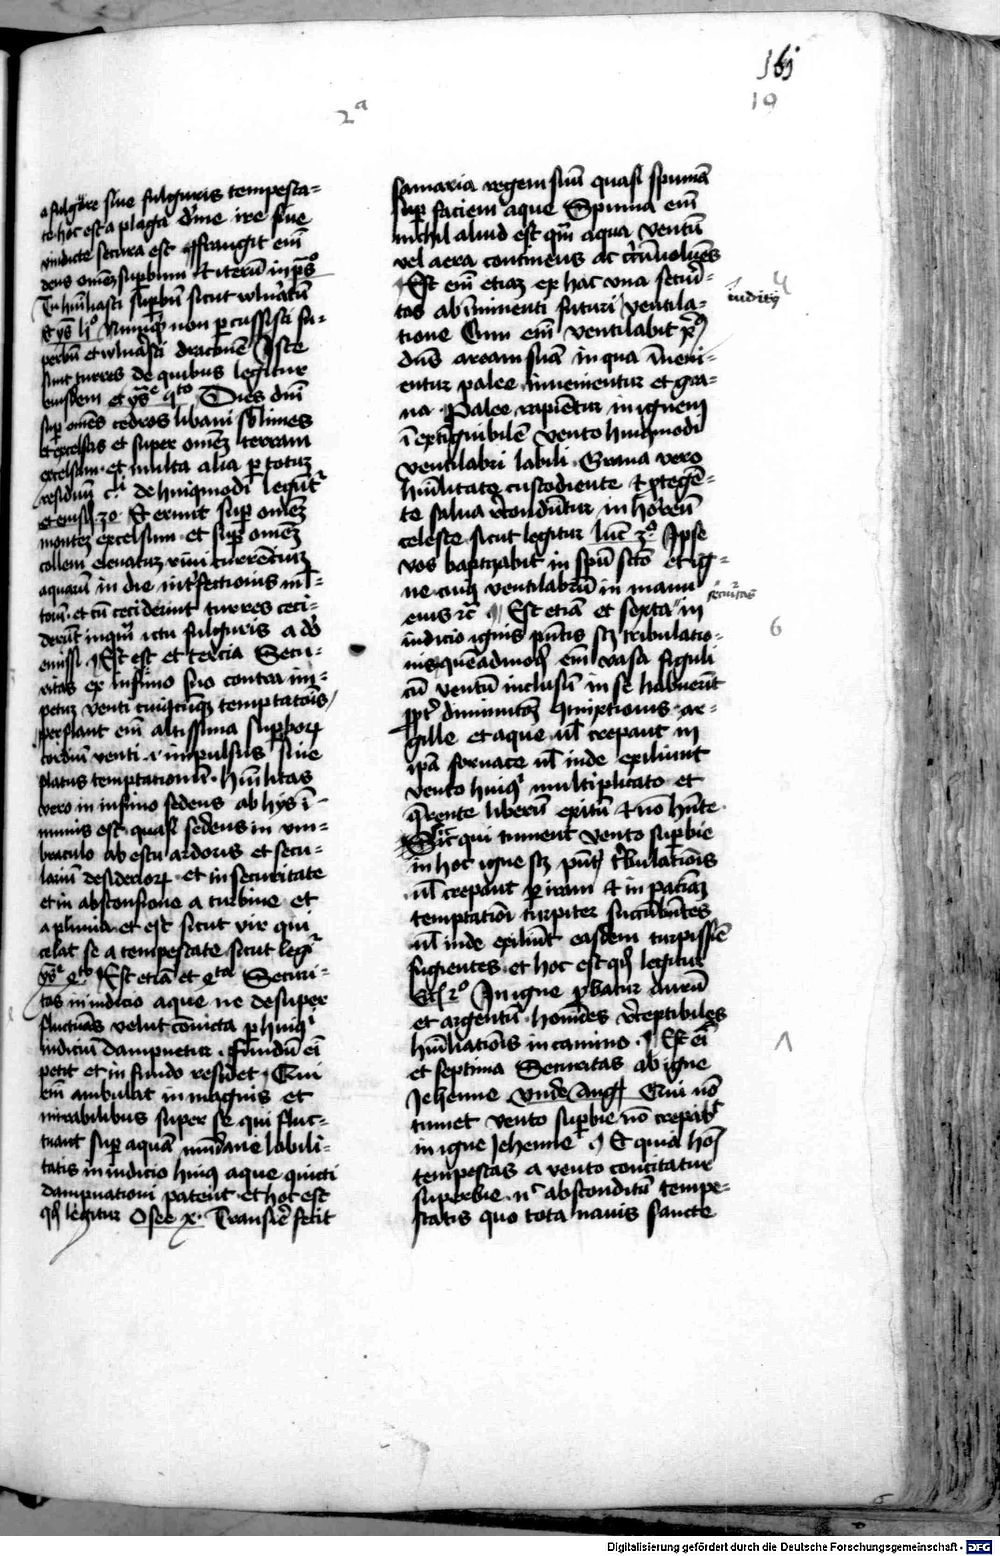 161
19
2a
a fulgure siue fulguris tempesta-
te hoc est a plaga diuine ire siue
vindicte secura est frangit enim
deus omnem superbum Et iterum in ps
Tu humiliasti superbum sicut wlneratum
Et ys li Numquid non percussisti su-
perbum et wlnerasti draconem Iste
sunt turres de quibus legitur
eiusdem et yse 2to Dies domini
super omnes cedros libani sublimes
et excelsas et super omnem terram
excelsam et multa alia per totum
residuum c.li de huiusmodi leguntur
et eiusdem 30 Et erunt super omnem
montem excelsum et super omnem
collem eleuatum riui currentium
aquarum in die interfectionis mul-
torum et cum ceciderint turres ceci-
derunt inquam ictu fulguris a deo
emissi Est et tercia Secu-
ritas ex infimo suo contra im-
petum venti cuiuscumque temptationis
perflant enim altissima superborum
cordium venti i impulsus siue
flatus temptationum humilitas
vero in infimo sedens ab hijs in-
munis est quasi sedens in vm-
braculo ab estu ardoris et secu-
larium desideriorum et in securitate
et in absconsione a turbine et
a pluuia et est sicut vir qui
celat se a tempestate sicut legitur
yse 2to Est etiam et 4ta Securi-
tas in iudicio aque ne desuper
fluctuans velut conuicta per huiusmodi
iudicium dampnetur fundum enim
petit et in fundo residet Qui
enim ambulat in magnis et
mirabilibus super se qui fluc-
tuant super aquam mundane labili-
tatis in iudicio huius aque quieti
dampnationi patent et hoc est
quod legitur Osee x. Transire fecit
samaria regem suum quasi spumam
super faciem aque Spuma enim
nichil aliud est quam aqua ventum
vel aera continens ac circumvoluens
Est enim etiam ex hac vna securi-
tas ab imminenti futuri ventila-
tione Cum enim ventilabit
dominus aream suam in qua inueni-
entur palee inuenientur et gra-
na Palee rapientur in ignem
inextinguibilem vento huiusmodi
ventilabri labili Grana vero
humilitate custodiente et protegen-
te salua reconduntur in horreum
celeste sicut legitur luc 3o Ipse
vos baptizabit in spiritu sancto et ig-
ne cuius ventilabrum in manu
eius etc Est etiam et sexta in
iudicio ignis presentis scilicet tribulatio-
nis quemadmodum enim vasa figuli
cum ventum inclusum in se habuerint
propter diminutionem commixtionis ar-
gille et aque uel crepant in
ipsa fornace uel inde exiliunt
vento huiusmodi multiplicato et
querente liberum exitum et non habente
Sic qui tument vento superbie
in hoc igne scilicet presentis tribulationis
uel crepant per iram et in paciam
temptationi turpiter succumbentes
uel inde exiliunt easdem turpissime
fugientes et hoc est quod legitur
Eccl 2o In igne probatur aurum
et argentum homines receptibiles
humiliationis in camino Est enim
et septima Securitas ab igne
Jehenne vnde Aug Qui non
tumet vento superbie non crepabit
in igne Jehenne Et quia hec
tempestas a vento concitatur
superbie absconditum tempe-
statis quo tota nauis sancte
iudicij 4
securitas
6
Digitalisierung gefördert durch die Deutsche Forschungsgemeinschaft - DFG